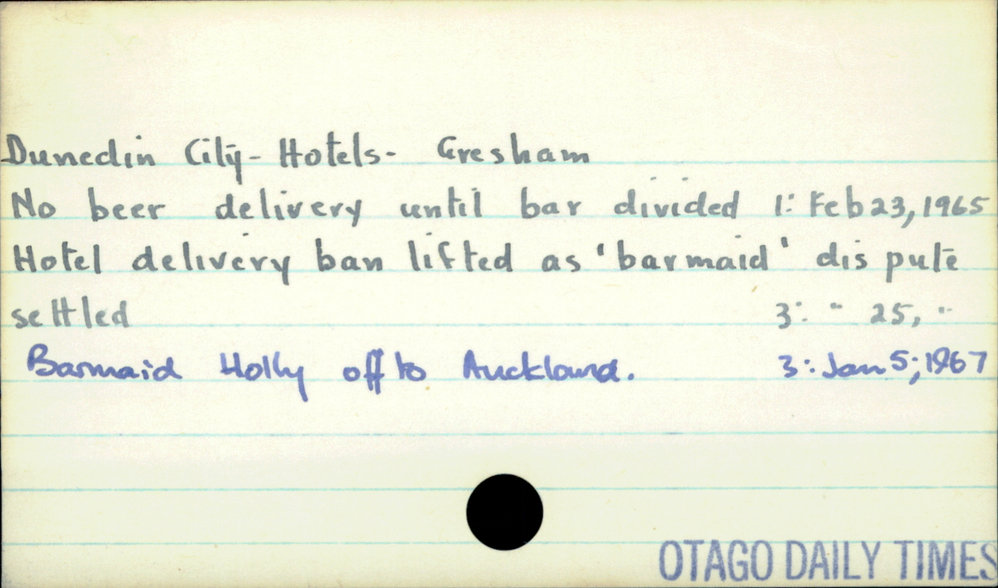 Dunedin City - Hotels - Gresham
No beer delivery until bar divided 1: Feb 23, 1965
Hotel delivery ban lifted as 'barmaid' dispute
settled 3: " 25, "
Barmaid Holly off to Auckland. 3: Jan 5; 1967
OTAGO DAILY TIMES